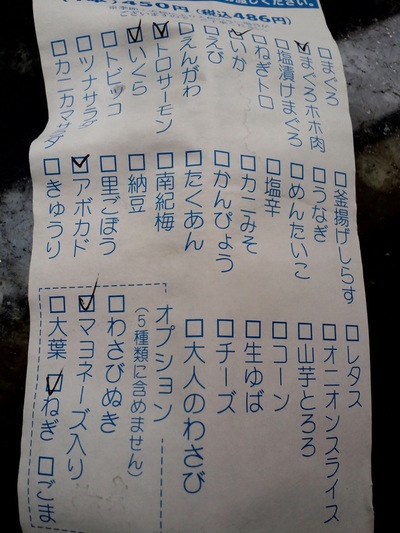 渡しください。
450円(税込486円)
□まぐろ
☑まぐろホホ肉
□塩漬けまぐろ
□ねぎトロ
☑いか
□えび
□えんがわ
☑トロサーモン
☑いくら
□トビッコ
□ツナサラダ
□カニカマサラダ
□釜揚げしらす
□うなぎ
□めんたいこ
□塩辛
□カニみそ
□かんぴょう
□たくあん
□南紀梅
□納豆
□里ごぼう
☑アボカド
□きゅうり
□レタス
□オニオンスライス
□山芋とろろ
□コーン
□生ゆば
□チーズ
□大人のわさび
オプション
(5種類に含めません)
□わさびぬき
☑マヨネーズ入り
□大葉 ☑ねぎ □ごま